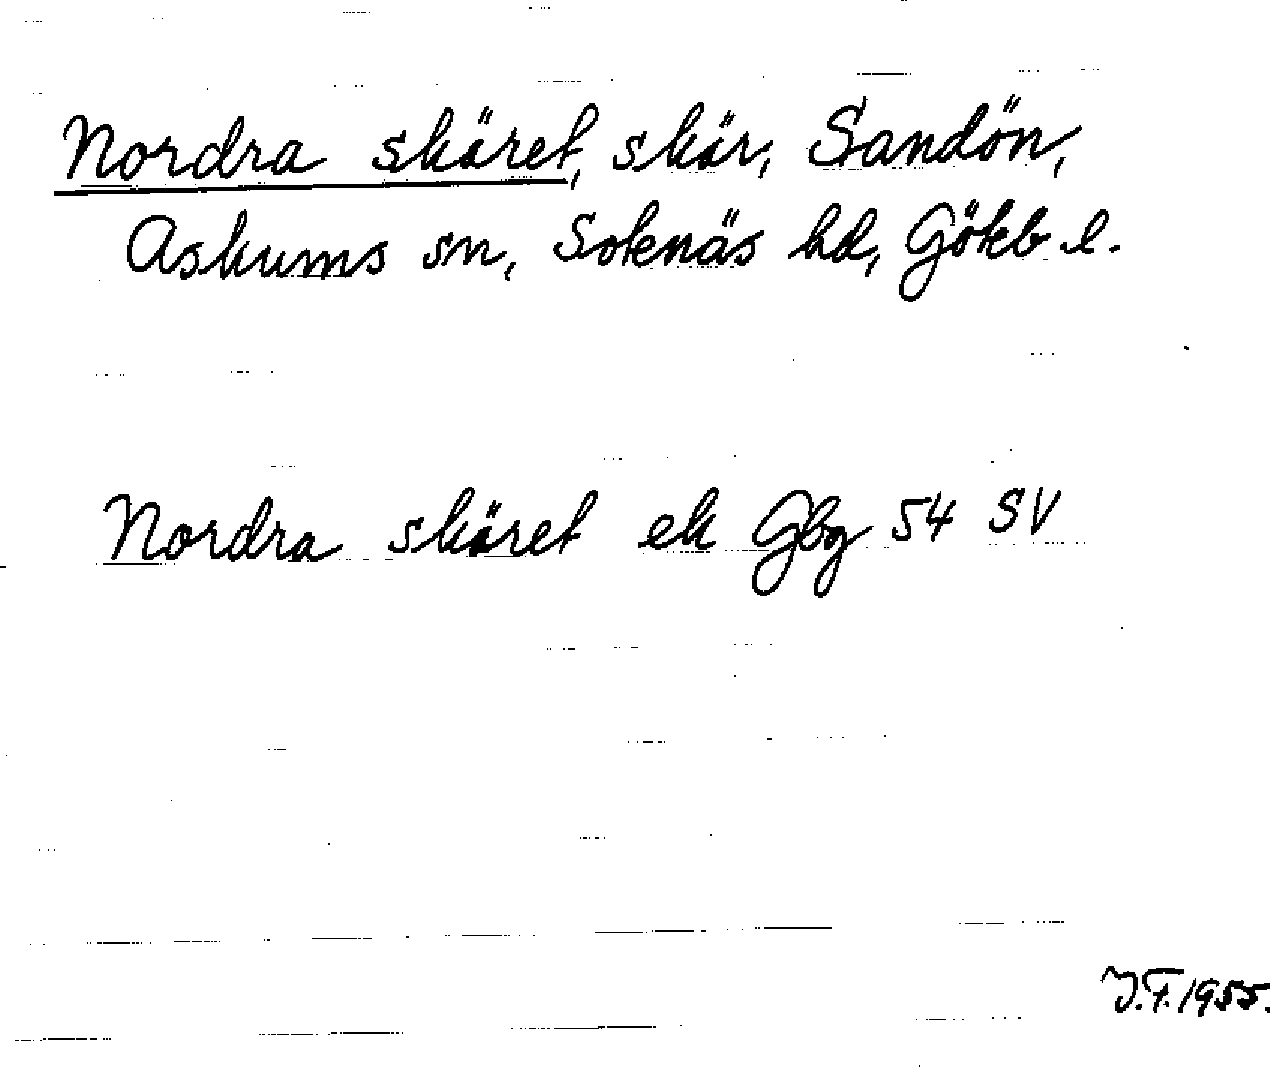 Nordra skäret, skär, Sandön,
Askums sn, Sotenäs hd, Götkb l.
Nordra skäret ek Gbg 54 SV
J.F. 1955.